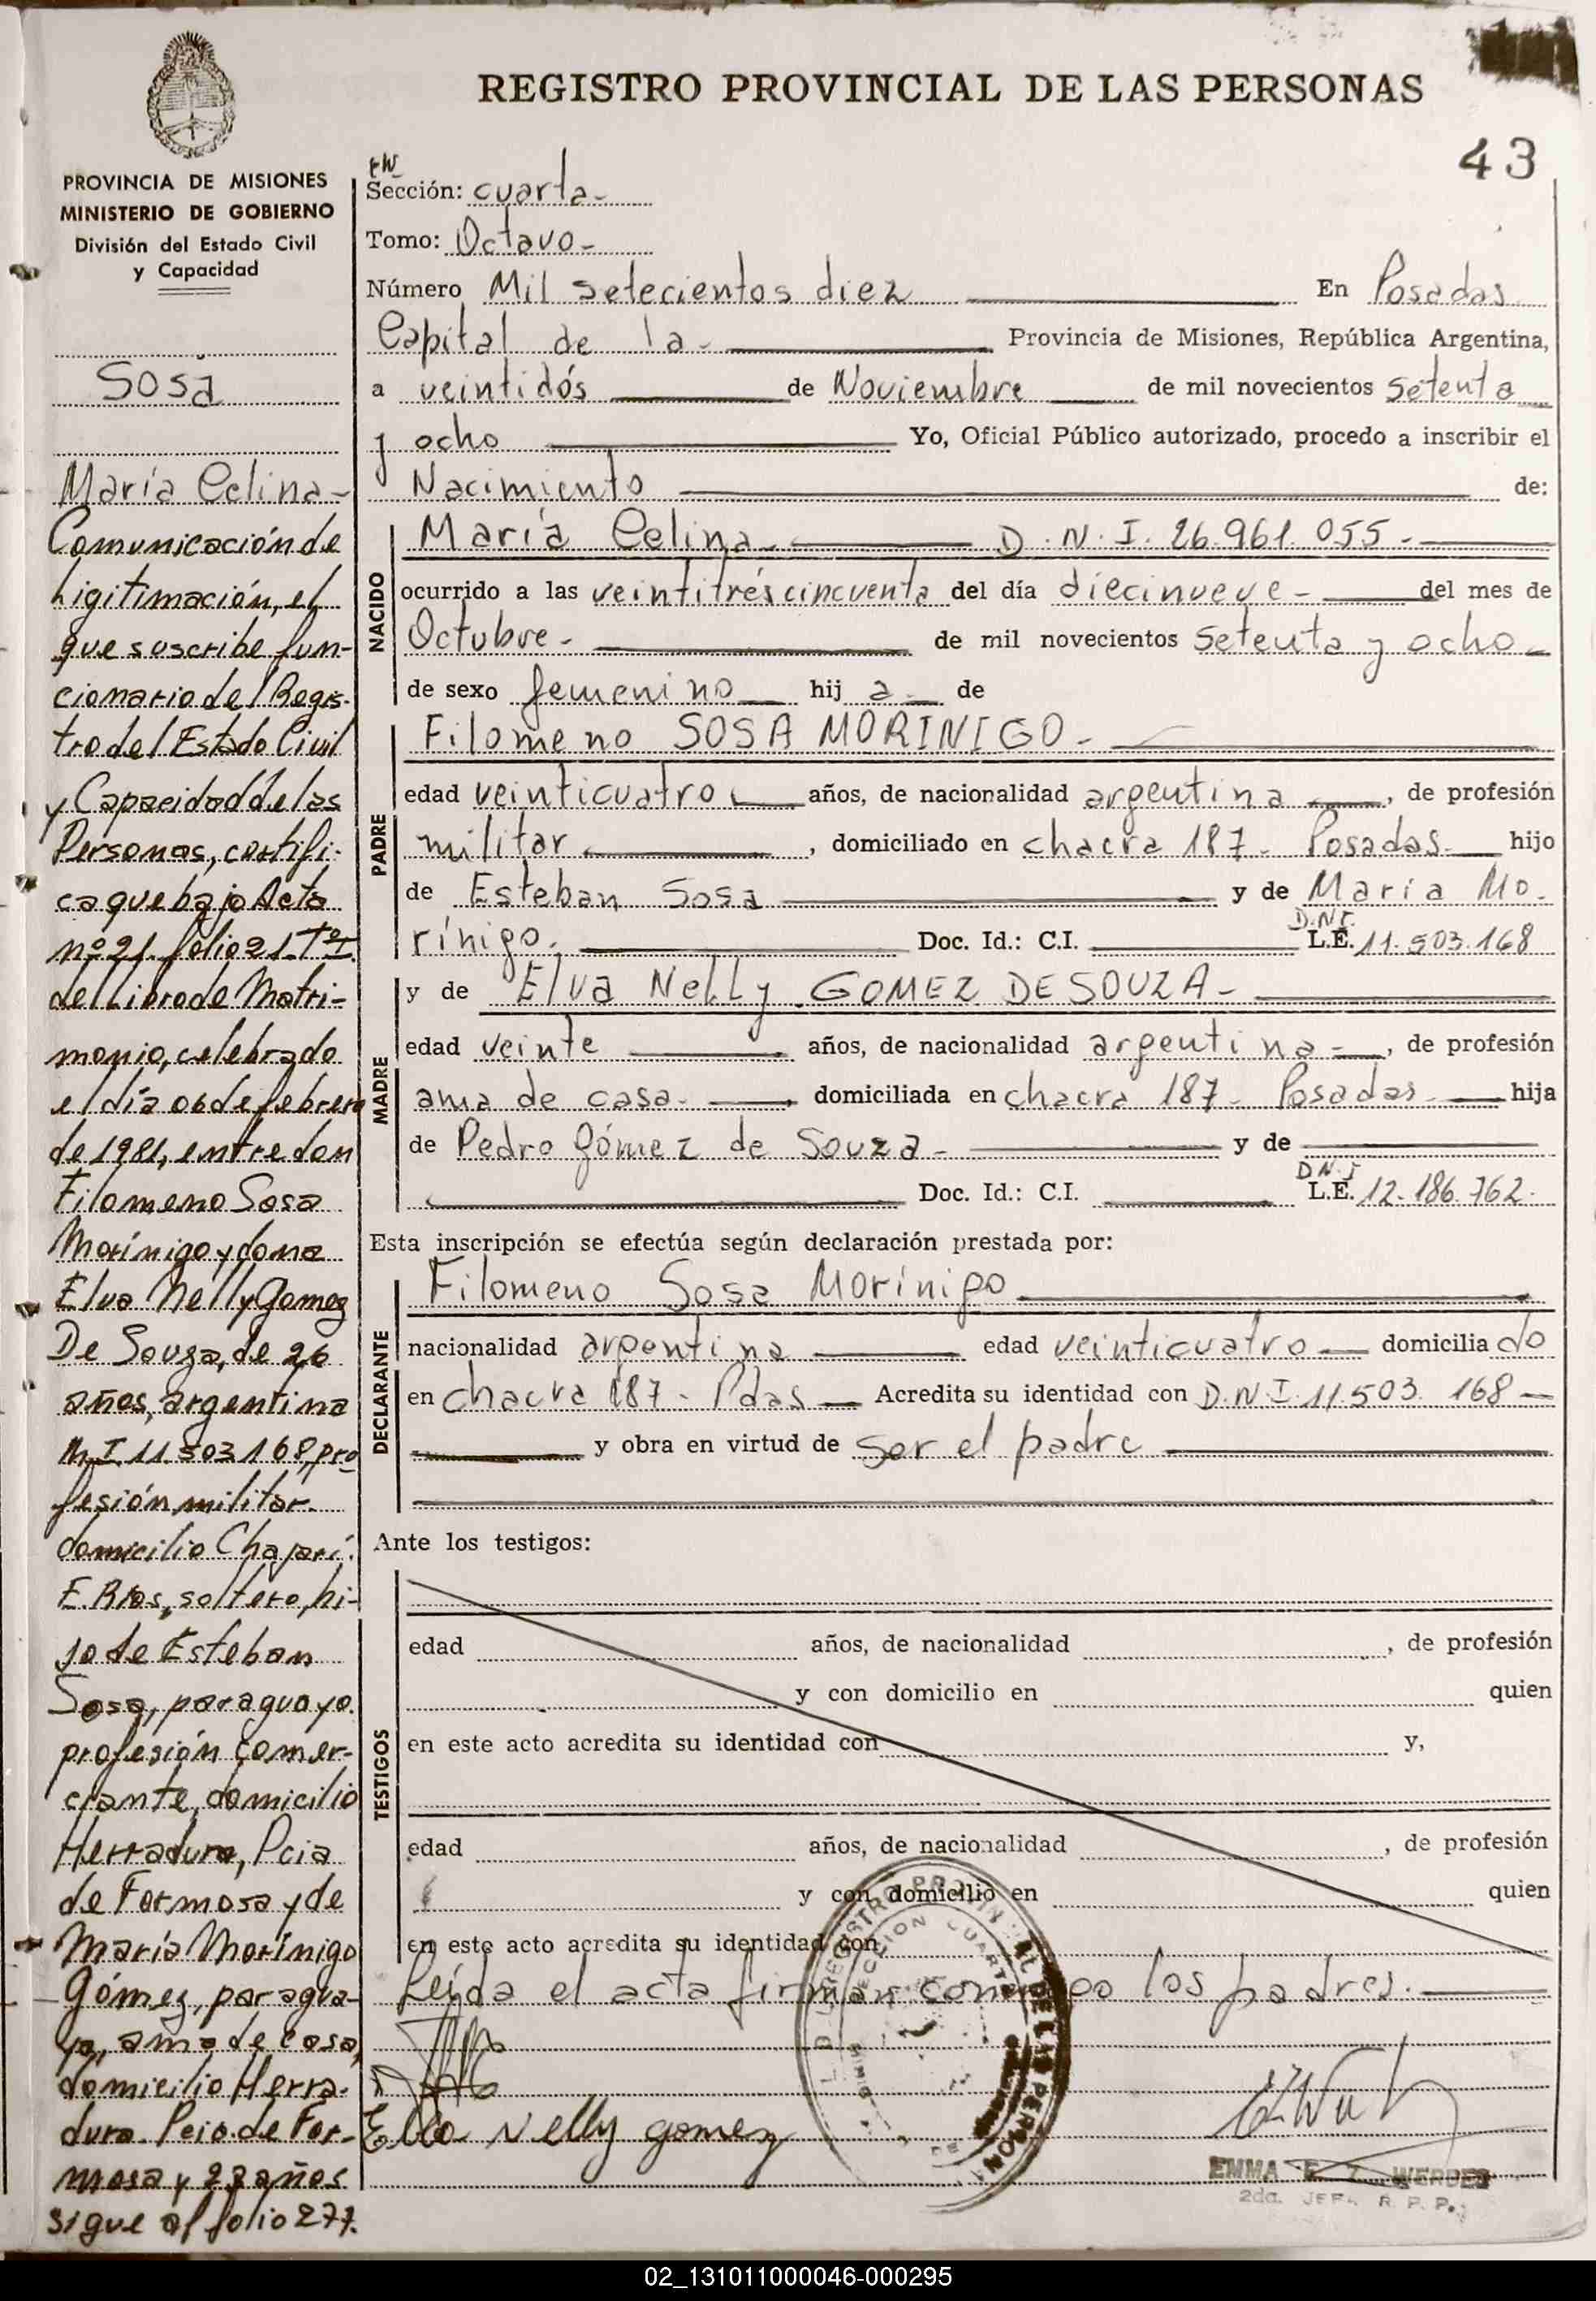 REGISTRO PROVINCIAL DE LAS PERSONAS
43
PROVINCIA DE MISIONES
MINISTERIO DE GOBIERNO
División del Estado Civil
y Capacidad
Sosa
María Celina-
Comunicación de
Ligitimación, el
que suscribe fun-
cionario del Regis-
tro del Estado Civil
y Capacidad de las
Personas, certifi-
ca que bajo Acta
nº 21. folio 21. Tº I
del Libro de Matri-
monio, celebrado
el día 06 de febrero
de 1981, entre don
Filomeno Sosa
Morínigo y dona
Elva Nelly Gomez
De Souza, de 26
años, argentina
M.I 11.503.168, pro
fesión militar.
domicilio Chajarí.
E. Rios, soltero, hi-
jo de Esteban
Sosa, paraguayo.
profesión comer-
ciante, domicilio
Herradura, Pcia
de Formosa y de
María Morínigo
Gómez, paragua-
ya, ama de casa,
domicilio Herra-
dura. Pcia. de For-
mosa y 22 años
sigue al folio 277.
Sección: cuarta-
Tomo: Octavo-
Número Mil setecientos diez En Posadas
Capital de la- Provincia de Misiones, República Argentina,
a veintidós de Noviembre de mil novecientos setenta
y ocho Yo, Oficial Público autorizado, procedo a inscribir el
Nacimiento de:
NACIDO
María Celina.- D.N.I. 26.961.055.-
ocurrido a las veintitrés cincuenta del día diecinueve- del mes de
Octubre- de mil novecientos setenta y ocho-
de sexo femenino hij a de
PADRE
Filomeno SOSA MORINIGO-
edad veinticuatro años, de nacionalidad argentina, de profesión
militar, domiciliado en chacra 187- Posadas- hijo
de Esteban Sosa y de María Mo.
rínigo. Doc. Id.: C.I. D.N.I. L.E. 11.503.168
MADRE
y de Elva Nelly GOMEZ DE SOUZA-
edad veinte años, de nacionalidad argentina-, de profesión
ama de casa- domiciliada en chacra 187- Posadas- hija
de Pedro Gómez de Souza- y de
Doc. Id.: C.I. D.N.I L.E. 12.186.762.
Esta inscripción se efectúa según declaración prestada por:
DECLARANTE
Filomeno Sosa Morínigo
nacionalidad argentina edad veinticuatro domicilia do
en chacra 187- Pdas Acredita su identidad con D.N.I. 11.503.168-
y obra en virtud de ser el padre
Ante los testigos:
TESTIGOS
edad años, de nacionalidad , de profesión
y con domicilio en quien
en este acto acredita su identidad con y,
edad años, de nacionalidad , de profesión
y con domicilio en quien
en este acto acredita su identidad con
Leída el acta firman conmigo los padres.
Elva Nelly gomez
EMMA
2da. JEFA R. P. P.
02_131011000046-000295